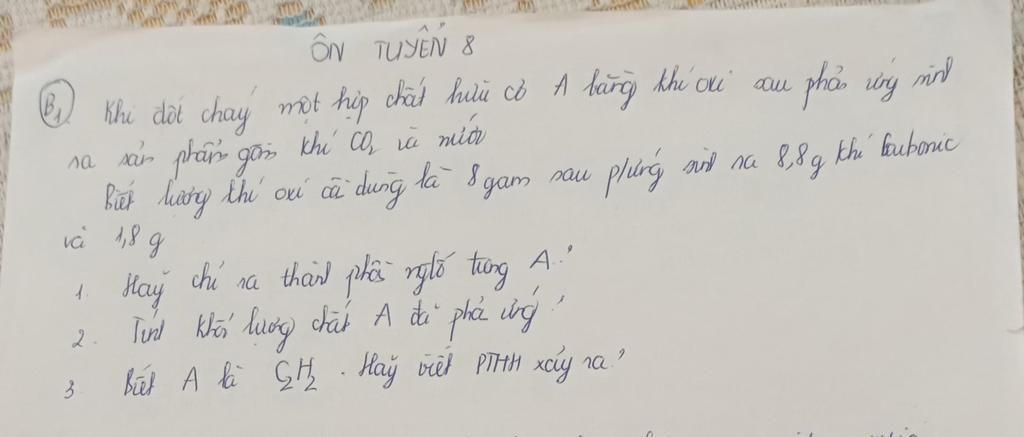 ÔN TUYỂN 8
B1 Khi đốt cháy một hợp chất hữu cơ A bằng khí oxi sau phản ứng sinh
ra sản phẩm gồm khí CO2 và nước
Biết lượng khí oxi cần dùng là 8 gam sau p/ứng sinh ra 8,8g khí Caubonic
và 1,8 g
1. Hãy chỉ ra thành phần ngtố trong A?
2. Tính khối lượng chất A đã phản ứng?
3. Biết A là C2H2. Hãy viết PTHH xảy ra?